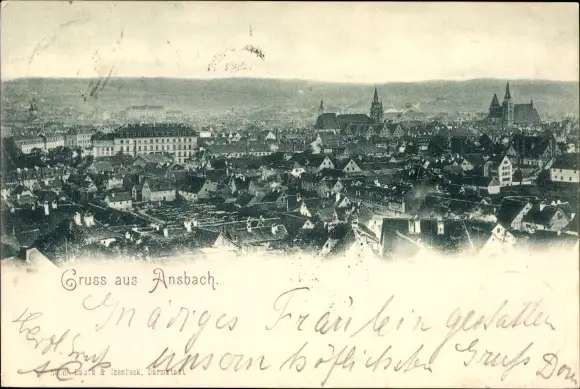 Gruss aus Ansbach.
Gnädiges Fräulein gestatten
unsern höflichsten Gruß
& Isenbeck, Darmstadt